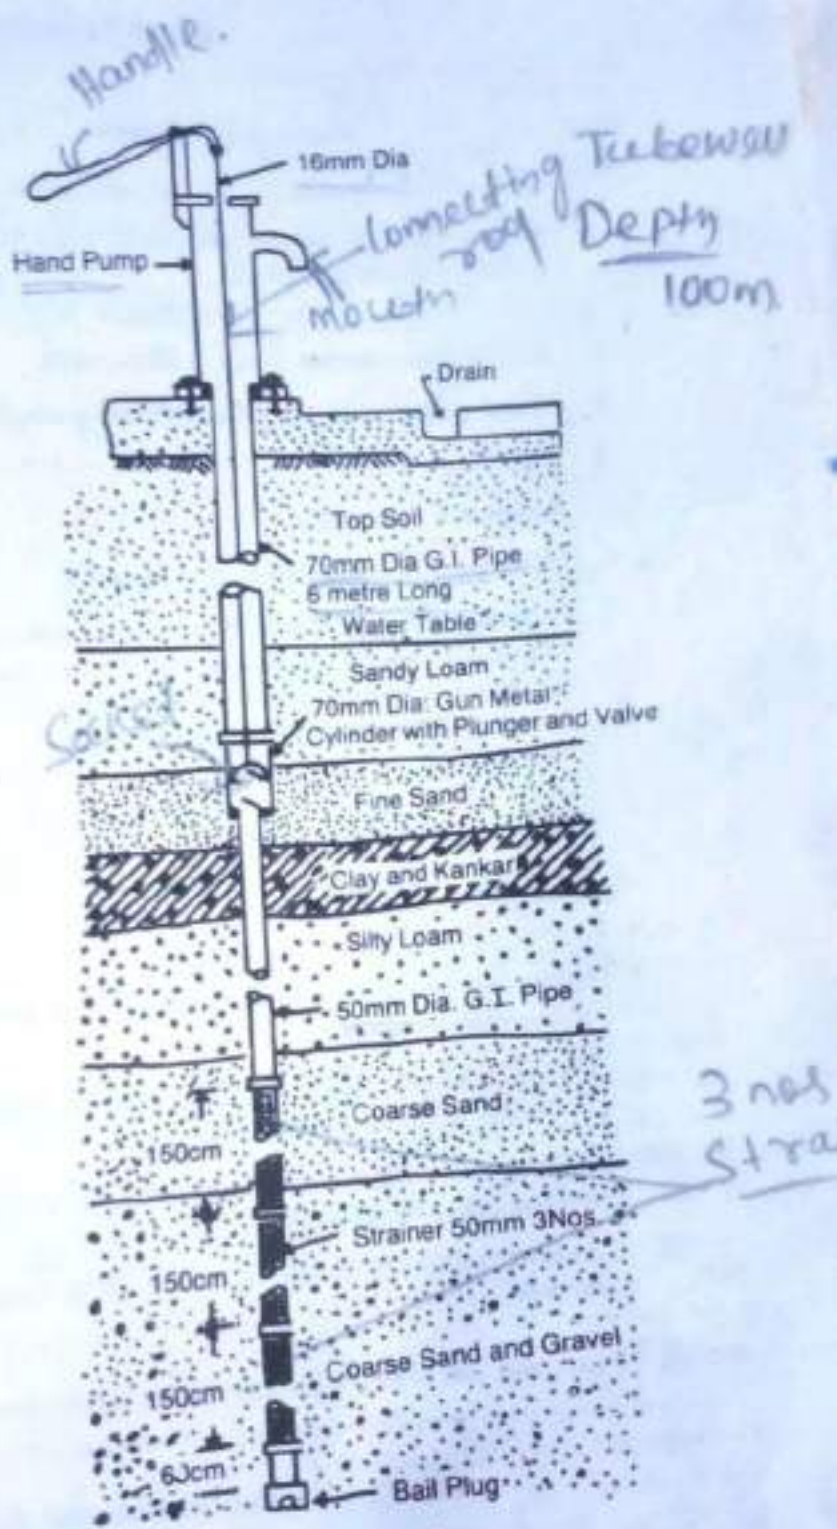 Handle.
16mm Dia
Tubewell
Connecting
rod
Depth
Hand Pump
mouth
100m
Drain
Top Soil
70mm Dia G.I. Pipe
6 metre Long
Water Table
Sandy Loam
70mm Dia: Gun Metal
Cylinder with Plunger and Valve
Socket
Fine Sand
Clay and Kankar
Silty Loam
50mm Dia. G.I. Pipe
Coarse Sand
3 nos
Stra
150cm
Strainer 50mm 3Nos
150cm
Coarse Sand and Gravel
150cm
60cm
Bail Plug